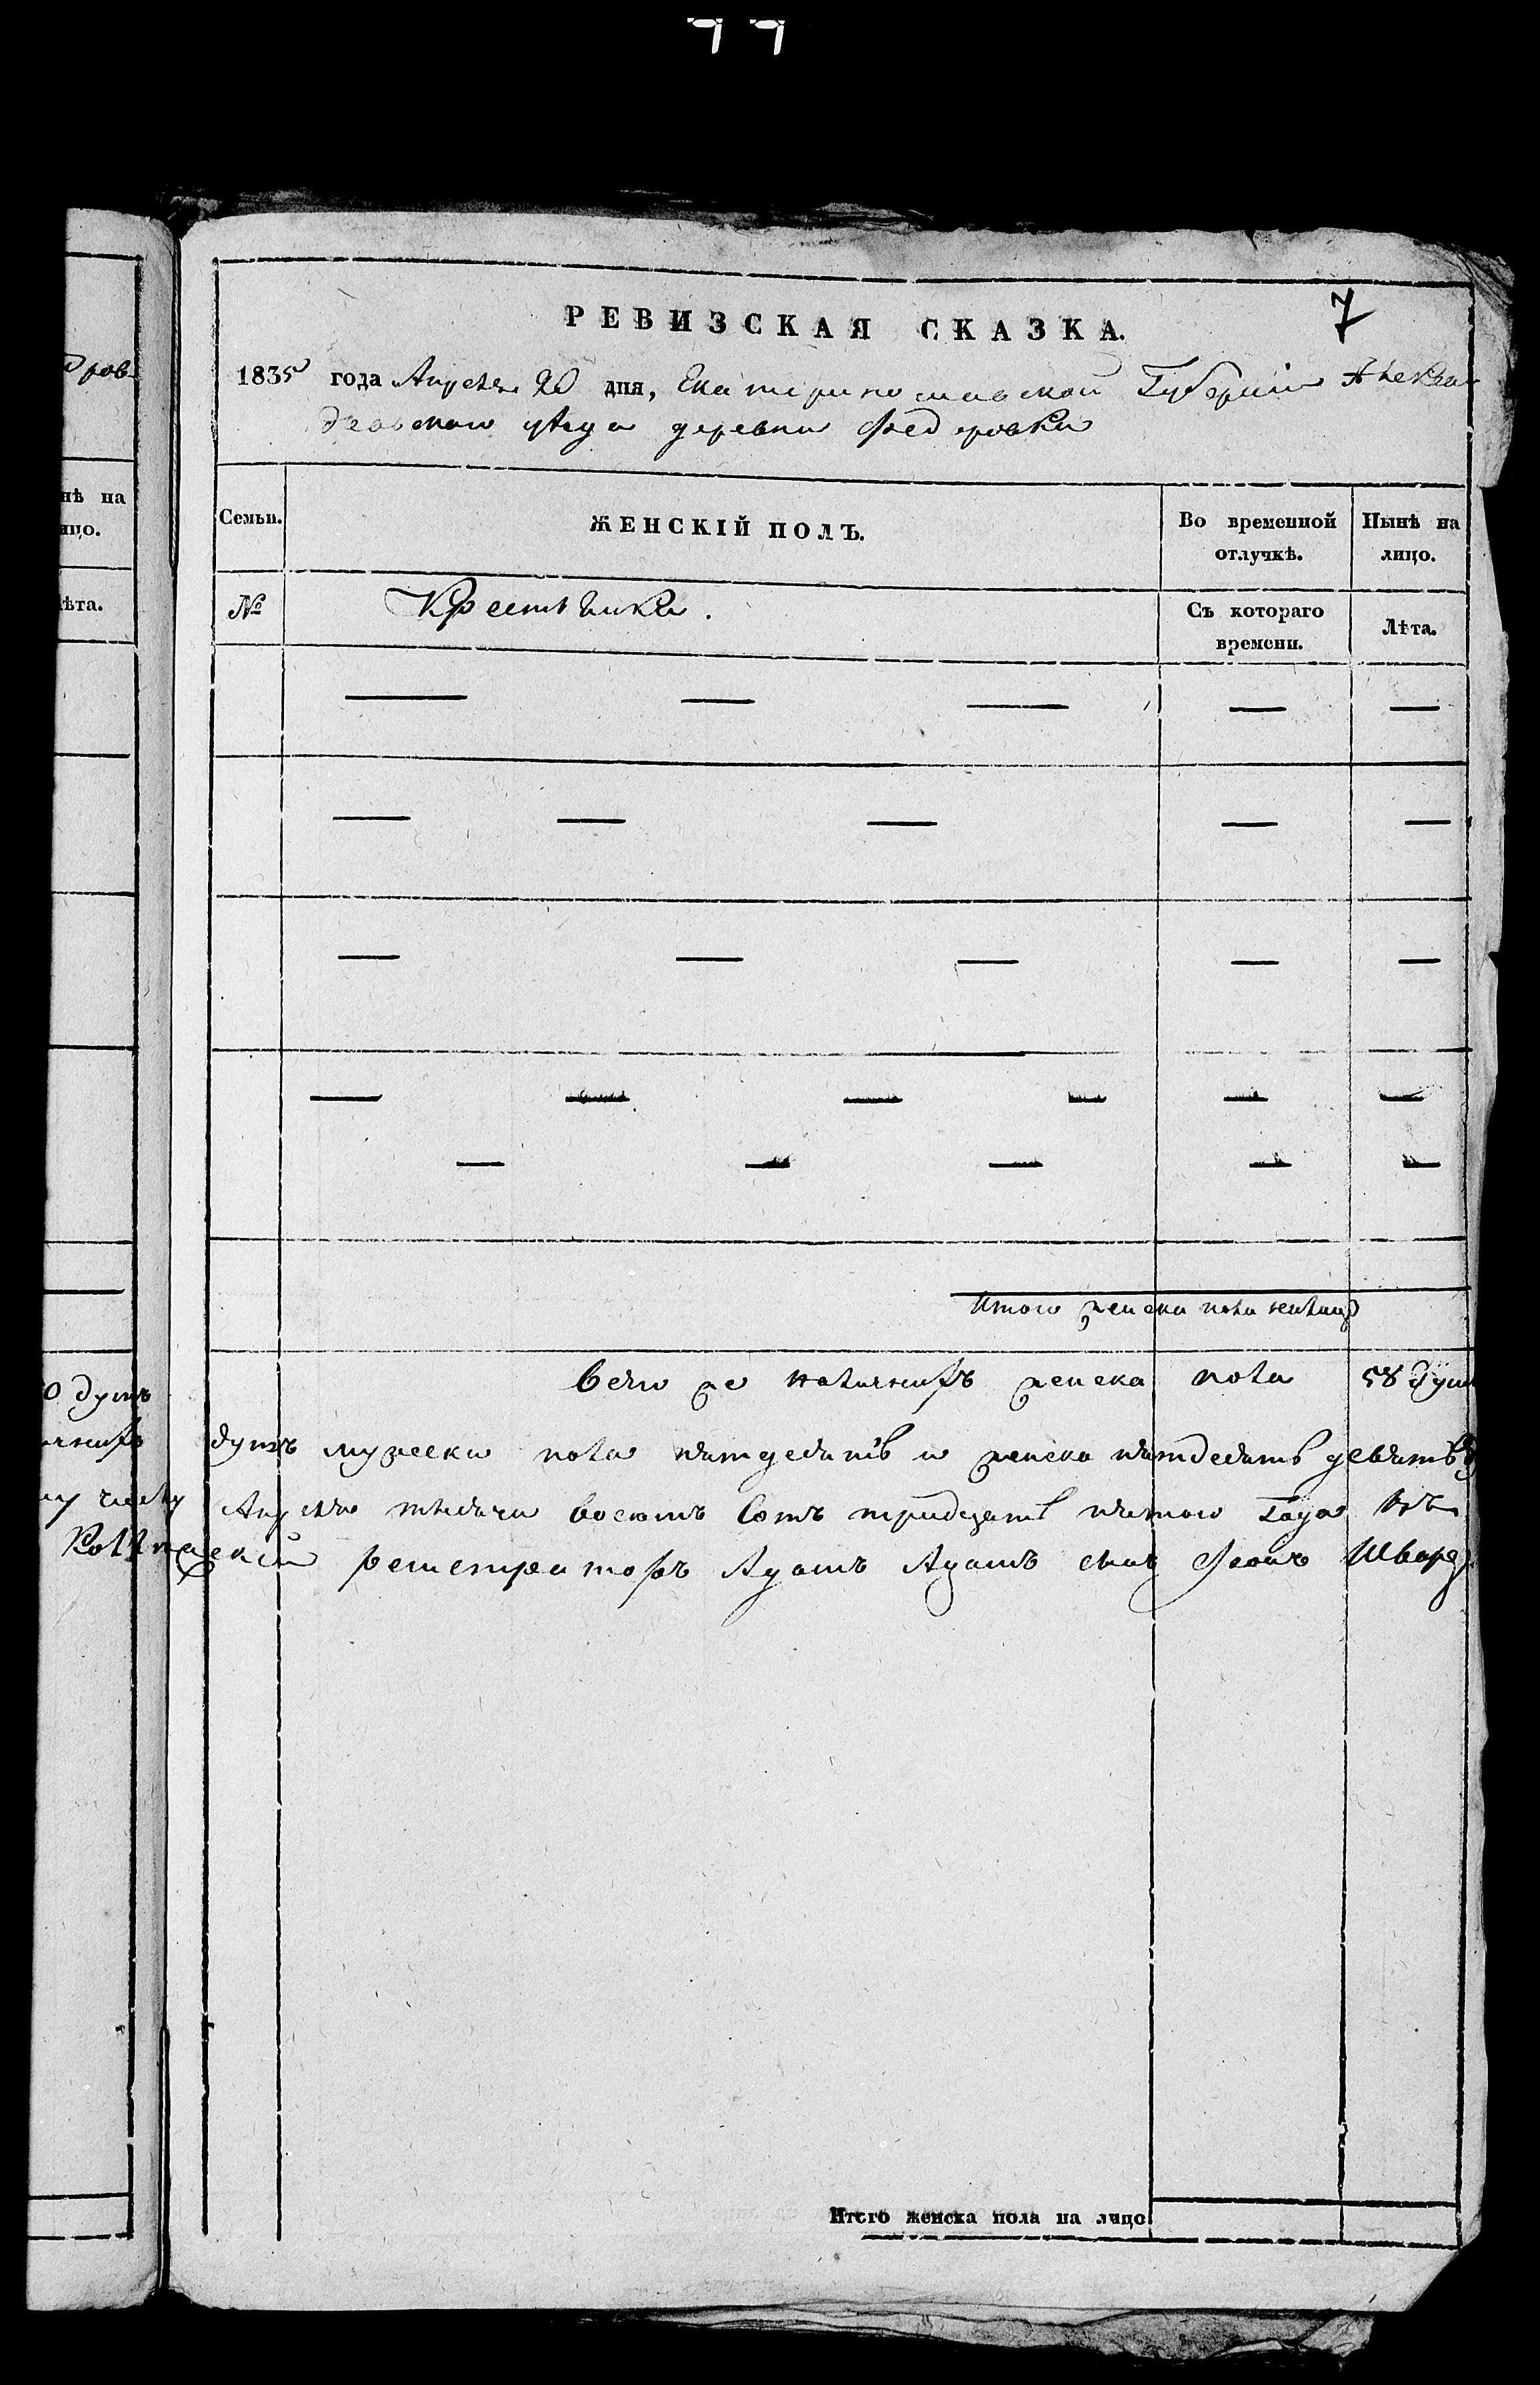 7
РЕВИЗСКАЯ СКАЗКА.
1835 года Апреля 20 дня, Екатеринославской Губернии Алексан
дровскаго уезда деревни Федоровки
Семьи.
ЖЕНСКІЙ ПОЛЪ.
Во временной отлучкѣ.
Нынѣ на лицо.
№
Крестьянки.
Съ котораго времени.
Лѣта.
Итого женска пола налицо
Всего же наличныхъ женска пола 58 душ
душъ мужеска пола пятдесятъ и женска пятдесятъ девять
Апреля тысячи восемь сотъ тридцать пятого Года
Коллежский регистраторъ Адамъ Адамъ сынъ Фонъ Шварц
Итого женска пола на лицо
дров
нѣ на
ицо.
ѣта.
0 душъ
ичныхъ
му числу